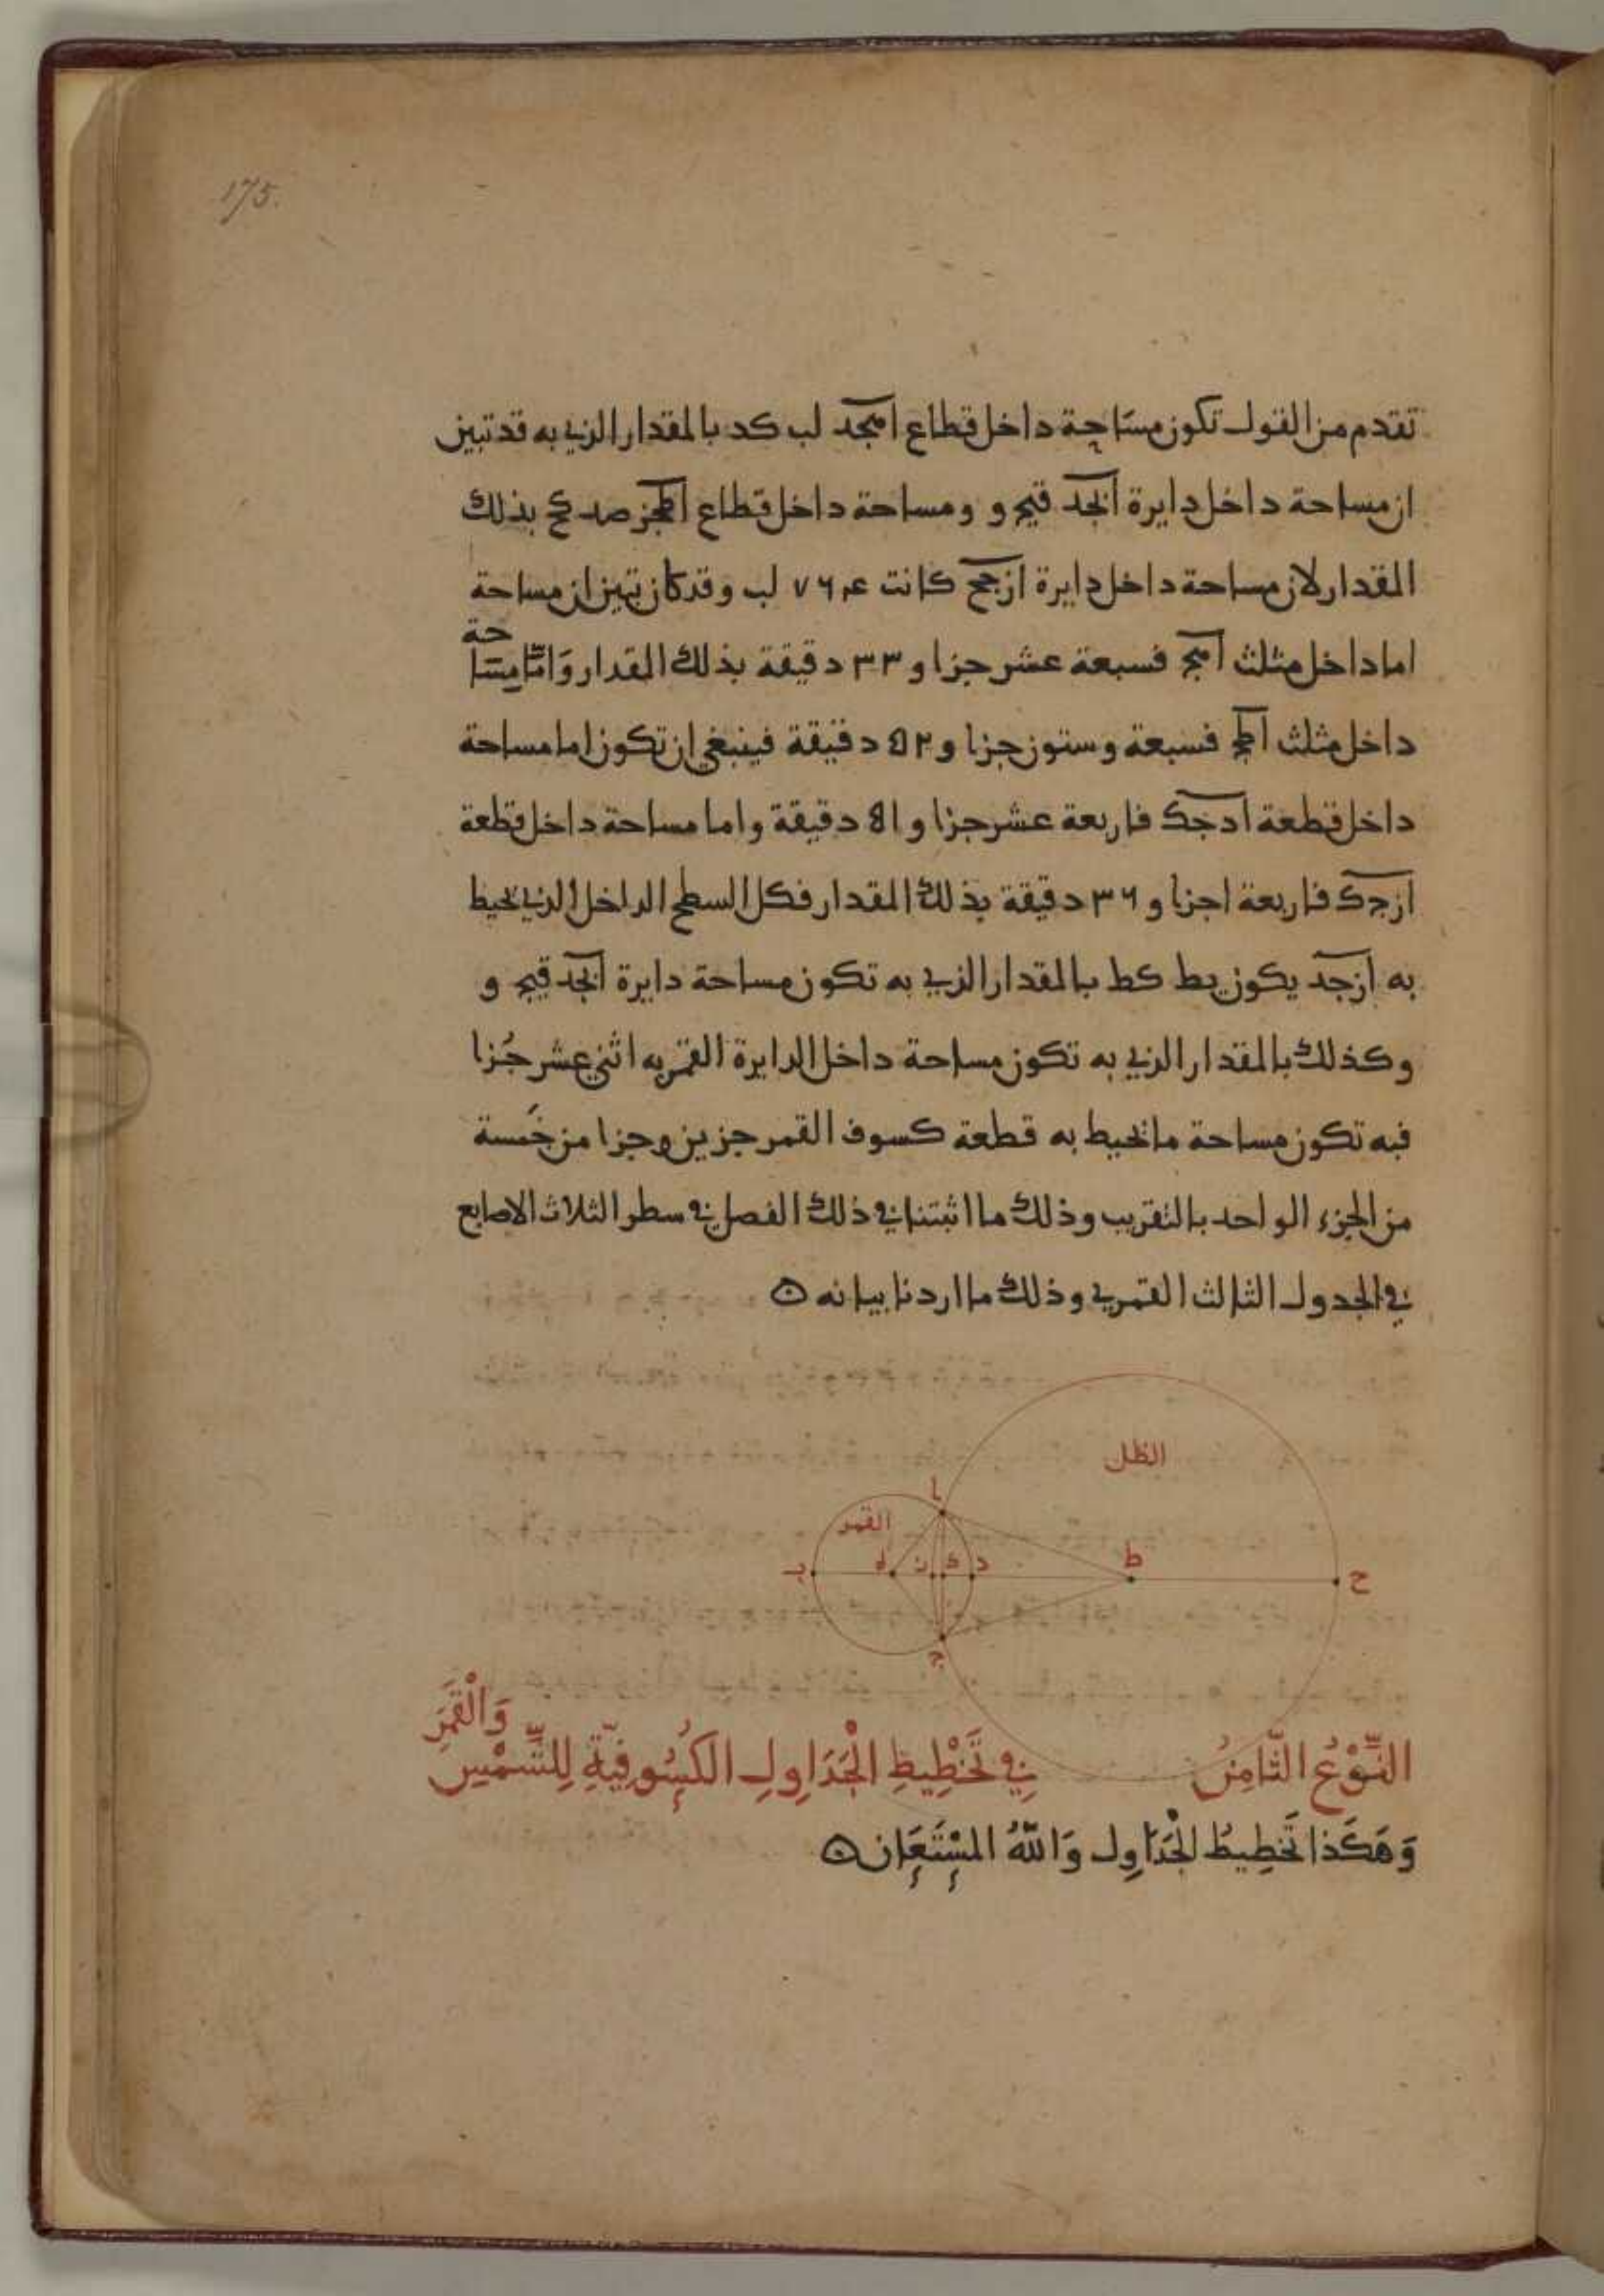 175.
تقدم من القول تكون مساحة داخل قطاع اهجد لب كد بالمقدار الذي به قد تبين
ان مساحة داخل دايرة ابجد قيج و ومساحة داخل قطاع اطجز صد كح بذلك
المقدار لان مساحة داخل دايرة ازجح كانت لب وقد كان تبين ان مساحة
اما داخل مثلث اهج فسبعة عشر جزا و ٣٣ دقيقة بذلك المقدار وَامّا مسَاحة
داخل مثلث اطج فسبعة وستون جزا و ٥٢ دقيقة فينبغي ان تكون اما مساحة
داخل قطعة ادجك فاربعة عشر جزا و ٥١ دقيقة واما مساحة داخل قطعة
ازجك فاربعة اجزا و ٣٦ دقيقة بذلك المقدار فكل السطح الداخل الذي يحيط
به ازجد يكون يط كط بالمقدار الذي به تكون مساحة دايرة ابجد قيج و
وكذلك بالمقدار الذي به تكون مساحة داخل الدايرة القمريه اثني عشر جُزا
فبه تكون مساحة ما تحيط به قطعة كسوف القمر جزين وجزا من خمَسة
من الجزء الواحد بالتقريب وذلك ما اثبتنا في ذلك الفصل في سطر الثلاث الاصابع
في الجدول الثالث القمري وذلك ما اردنا بيانه
الظل
ا
القمر
ب ه ز ك د ط ح
ج
النَّوْعُ الثّامِنُ في تَخْطِيطِ الْجَدَاوِلِ الكُسُوفِيّةِ لِلشَّمْسِ وَالْقَمَرِ
وَهَكَذا تَخطِيطُ الجَدَاوِل وَاللّهُ المسْتَعَان